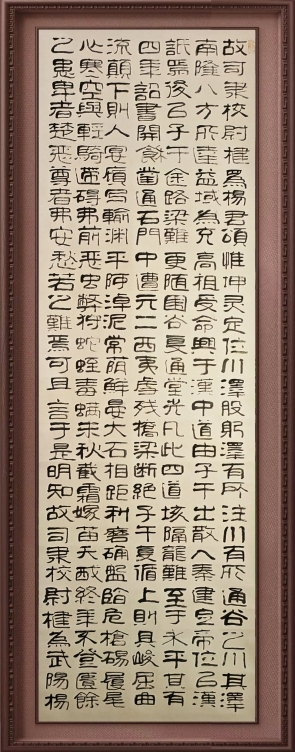 故司隸校尉楗為楊君頌惟坤靈定位川澤股躬澤有所注川有所通谷之川其澤
南隆八方所達益域為充高祖受命興于漢中道由子午出散入秦建定帝位以漢
詆焉後以子午途路澀難更隨圍谷復通堂光凡此四道垓隔尤難至于永平其有
四年詔書開餘鑿通石門中遭元二西夷虐殘橋梁斷絕子午復循上則縣峻屈曲
流顛下則入冥傾寫輸淵平阿淖泥常蔭鮮晏木石相距利磨确盤臨危槍碭履尾
心寒空輿輕騎遰碍弗前惡虫蔽狩蛇蛭毒蟃未秋截霜稼苗夭殘終年不登匱餘
之患卑者楚惡尊者弗安愁苦之難焉可具言于是明知故司隸校尉楗為武陽楊